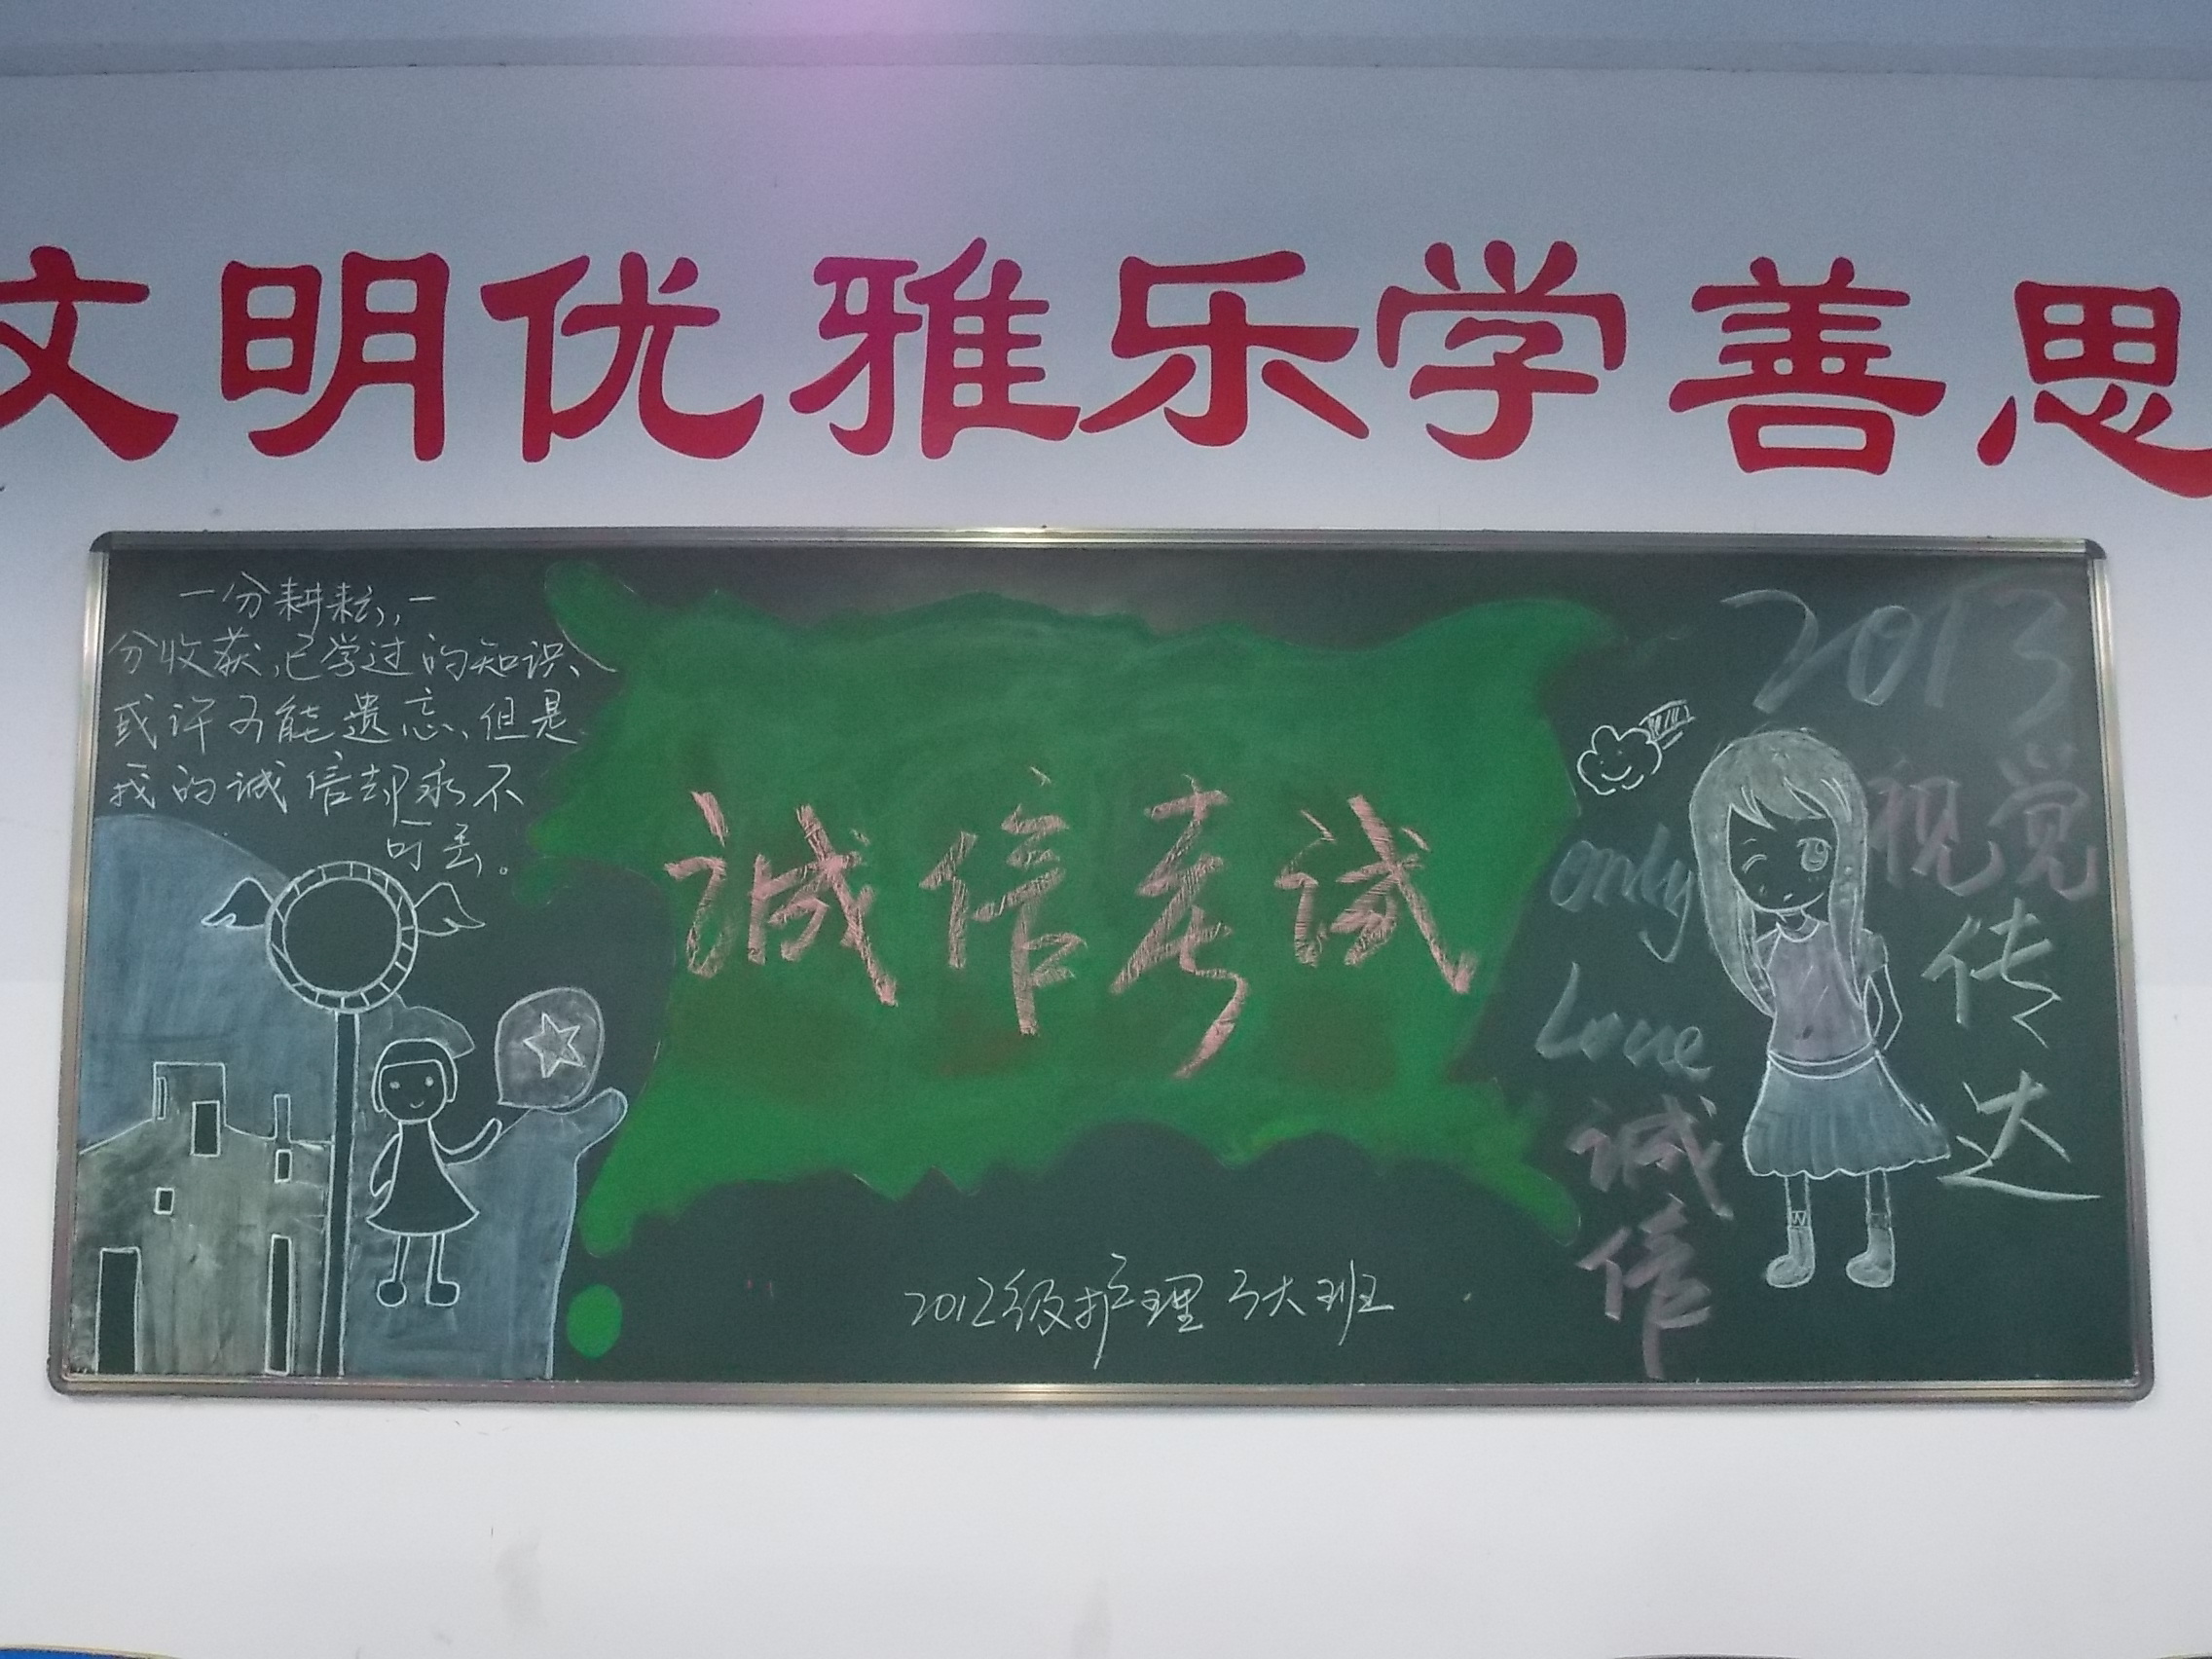 文明优雅乐学善思
一分耕耘,一
分收获,已学过的知识、
或许可能遗忘、但是
我的诚信却永不
可丢。
诚信考试
2012级护理3大班
2013
视觉
传
达
only
Love
诚
信